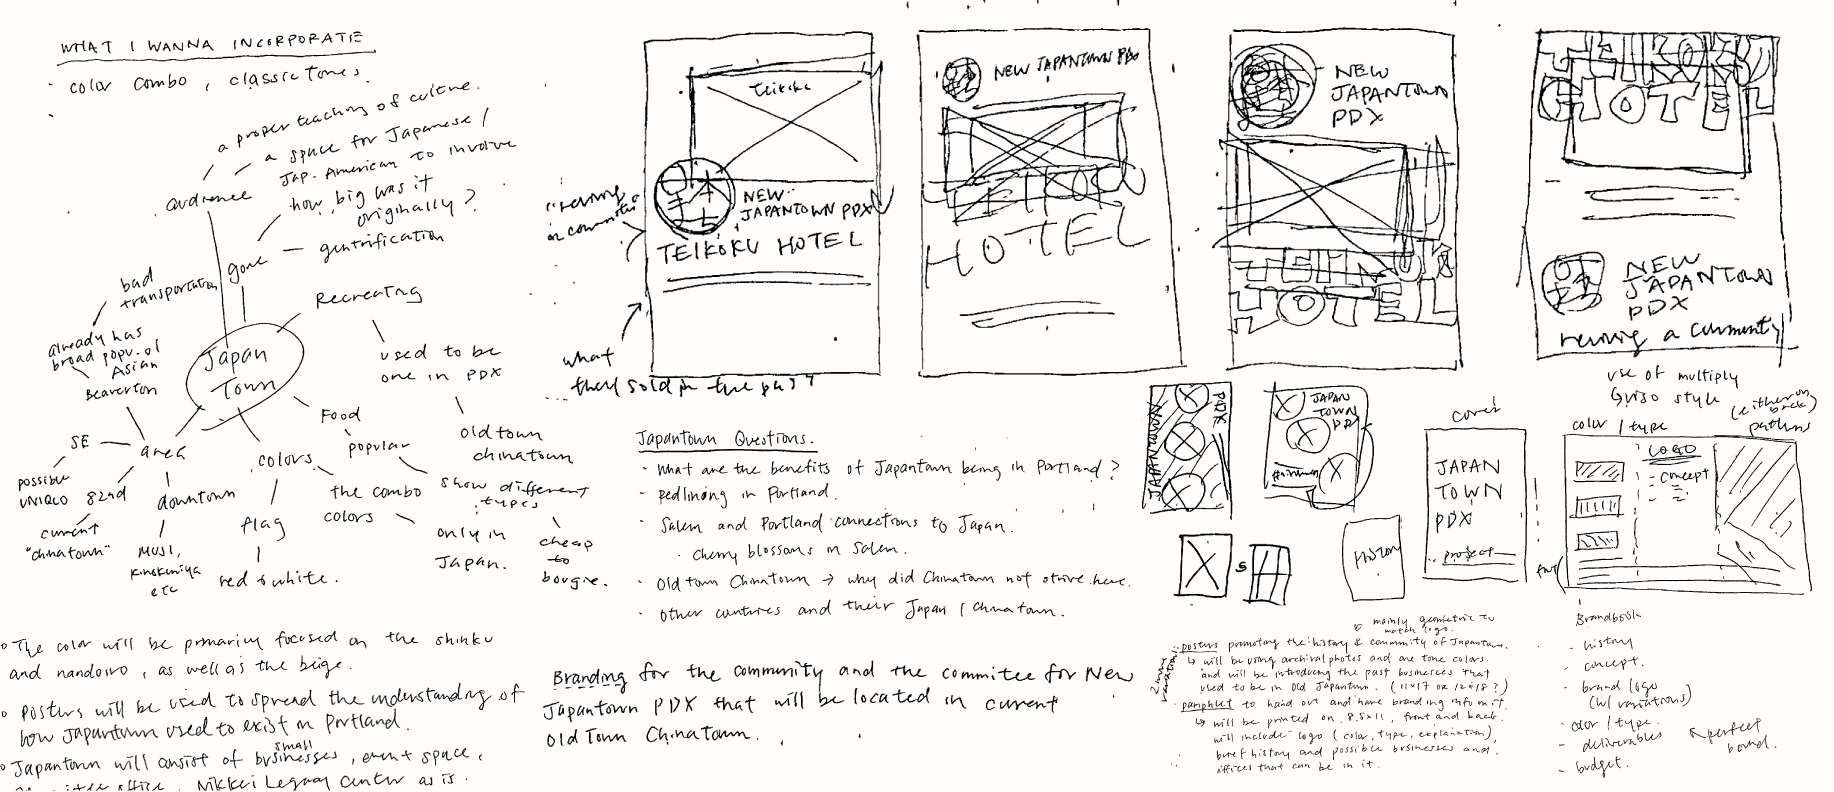 WHAT I WANNA INCORPORATE
· color combo, classic tones.
·
a proper teaching of culture.
a space for Japanese /
Jap. American to involve
audience
how big was it
originally?
gone
gentrification
bad
transportation
Recreating
already has
broad popu. of
Asian
Beaverton
Japan
Town
used to be
one in PDX
old town
chinatown
Food
popular
show different
types
cheap
to
bougie.
only in
Japan.
SE
area
possible
UNIQLO
82nd
current
"chinatown"
downtown
MUJI,
Kinokuniya
etc
colors
the combo
colors
flag
red & white.
o The color will be primarily focused on the shinku
and nandoiro, as well as the beige.
o Posters will be used to spread the understanding of
how Japantown used to exist in Portland.
o Japantown will consist of small businesses, event space,
office, Nikkei Legacy Center as is.
Teikoku
日本
NEW
JAPANTOWN PDX
TEIKOKU HOTEL
reviving
what
they sold in the past
NEW JAPANTOWN PDX
TEIKOKU
HOTEL
NEW
JAPANTOWN
PDX
TEIKOKU
HOTEL
TEIKOKU
HOTEL
NEW
JAPANTOWN
PDX
reviving a community
use of multiply
riso style
Japantown Questions.
· What are the benefits of Japantown being in Portland?
· Redlining in Portland.
· Salem and Portland connections to Japan.
· Cherry blossoms in Salem.
· Old town Chinatown → why did Chinatown not strive here.
· Other countries and their Japan / Chinatown.
Branding for the community and the commitee for New
Japantown PDX that will be located in current
Old Town Chinatown.
JAPANTOWN
PDX
JAPAN
TOWN
PDX
History
cover
JAPAN
TOWN
PDX
project
color / type
(either on
back)
patterns
LOGO
- concept
mainly geometric to
match logo.
· posters promoting the history & community of Japantown.
↳ will be using archival photos and are tone colors.
and will be introducing the past businesses that
used to be in old Japantown. (11x17 or 12x18?)
· pamphlet to hand out and have branding info in it.
↳ will be printed on 8.5x11, front and back.
will include logo (color, type, explanation),
brief history and possible businesses and
offices that can be in it.
Brandbook
- history
- concept.
- brand logo
(w/ variations)
- color / type.
- deliverables
- budget.
perfect
bound.